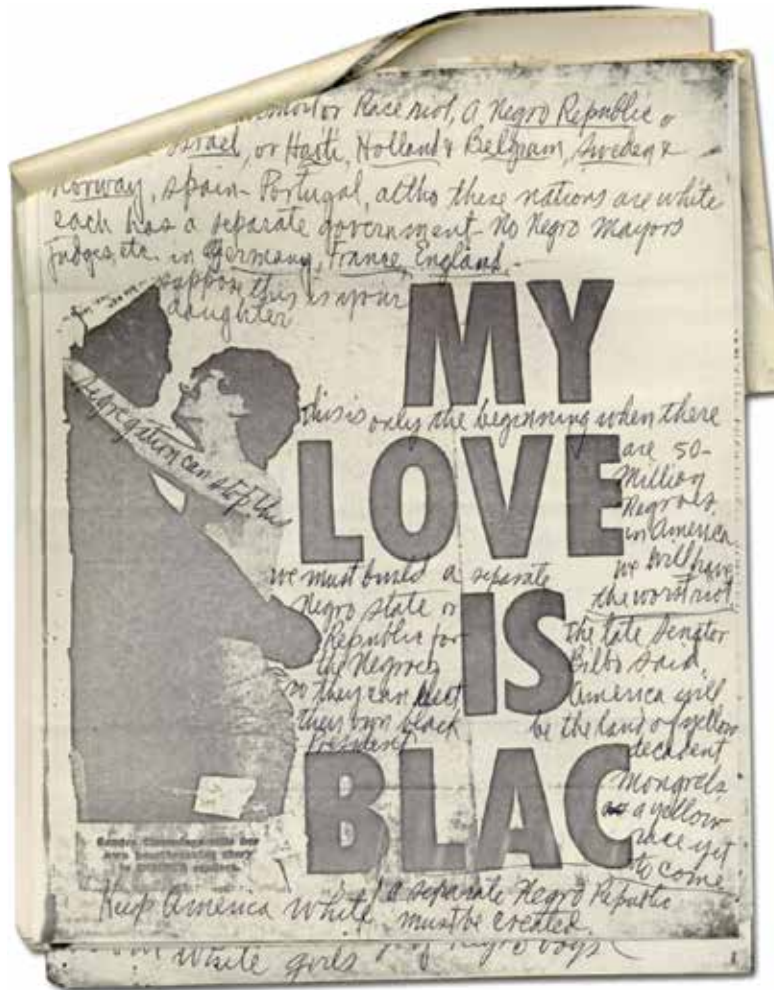 or Race riot, A Negro Republic
Israel, or Haiti, Holland & Belgium, Sweden &
Norway, Spain - Portugal, altho these nations are white
each has a separate government - No Negro Mayors
Judges, etc. in Germany, France, England -
suppose this is your
daughter
segregation can stop this
MY
this is only the beginning when there
are 50-
Million
Negroes
in America
we will have
the worst riot
LOVE
we must build a separate
Negro state or
Republic for
the Negroes
so they can elect
their own black
President
IS
the late Senator
Bilbo said,
America will
be the land of yellow
decadent
Mongrels
a yellow
race yet
to come
BLAC
Keep America white a separate Negro Republic
must be created
white girls Negro boys